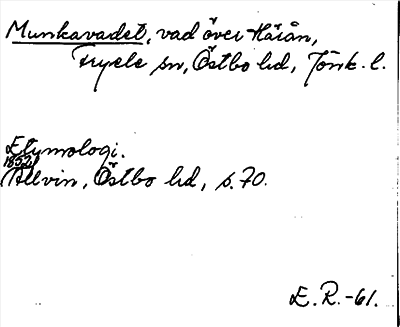 Munkavadet, vad över Härån,
Tryele sn, Östbo hd, Jönk. l.
Etymologi.
1852
Allvin, Östbo hd, s. 70.
E. R. -61.